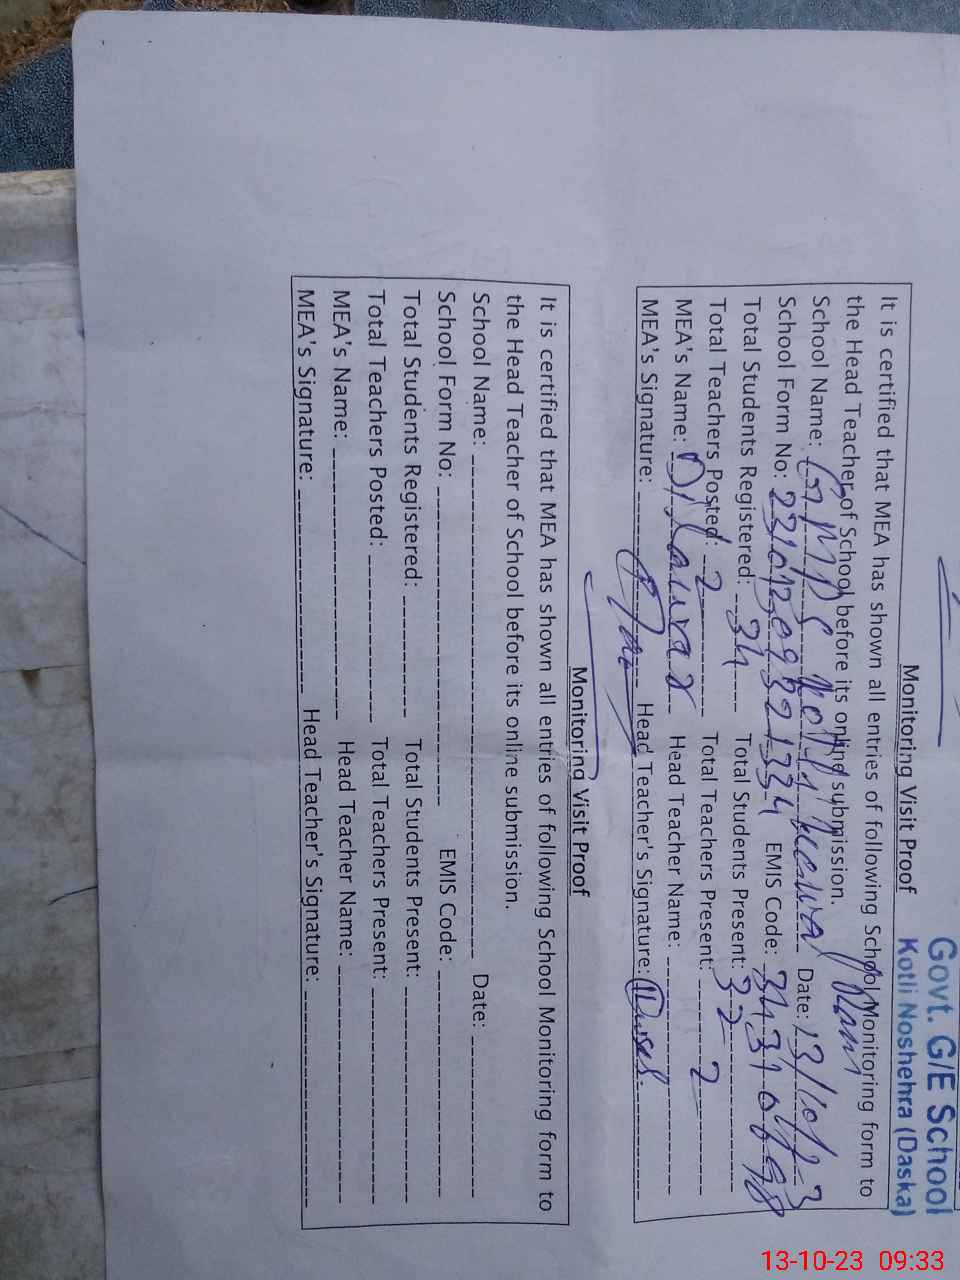 Govt. G/E School
Kotli Noshehra (Daska)
Monitoring Visit Proof
It is certified that MEA has shown all entries of following School Monitoring form to
the Head Teacher of School before its online submission.
School Name: GMPS Kotli Date: 13/10/23
School Form No: EMIS Code:
Total Students Registered: 34 Total Students Present: 32
Total Teachers Posted: 2 Total Teachers Present: 2
MEA's Name: Dilawar Head Teacher Name:
MEA's Signature: Head Teacher's Signature:
Monitoring Visit Proof
It is certified that MEA has shown all entries of following School Monitoring form to
the Head Teacher of School before its online submission.
School Name: Date:
School Form No: EMIS Code:
Total Students Registered: Total Students Present:
Total Teachers Posted: Total Teachers Present:
MEA's Name: Head Teacher Name:
MEA's Signature: Head Teacher's Signature:
13-10-23 09:33